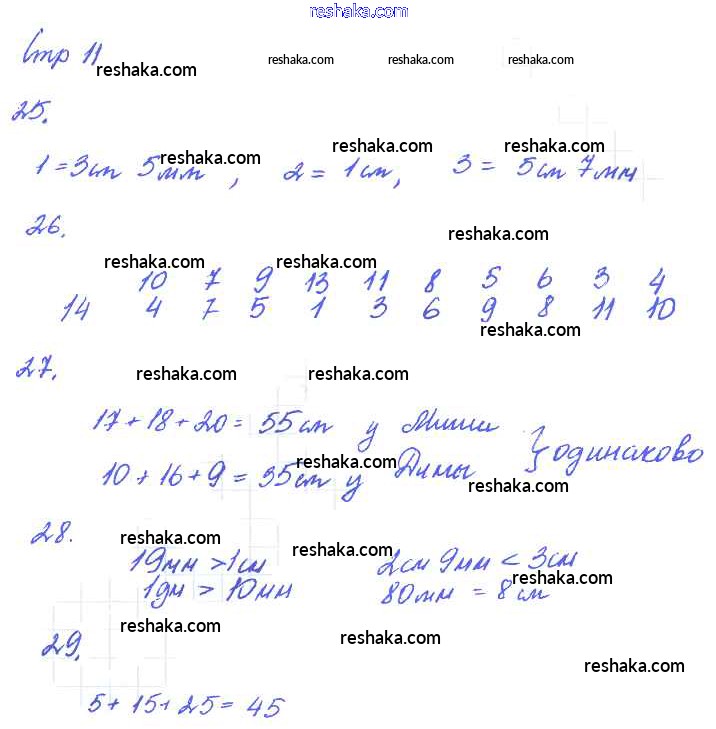 www.reshaka.com
Стр 11
reshaka.com reshaka.com reshaka.com reshaka.com
25.
reshaka.com reshaka.com reshaka.com
1 = 3см 5мм , 2 = 1см, 3 = 5см 7мм
26.
reshaka.com
reshaka.com reshaka.com
10 7 9 13 11 8 5 6 3 4
14 4 7 5 1 3 6 9 8 11 10
reshaka.com
27.
reshaka.com reshaka.com
17 + 18 + 20 = 55см у Миши
} одинаково
reshaka.com
10 + 16 + 9 = 35см у Димы
reshaka.com
28.
reshaka.com reshaka.com
19мм > 1см 2см 9мм < 3см
reshaka.com
1дм > 10мм 80мм = 8см
29.
reshaka.com reshaka.com
reshaka.com
5 + 15 + 25 = 45